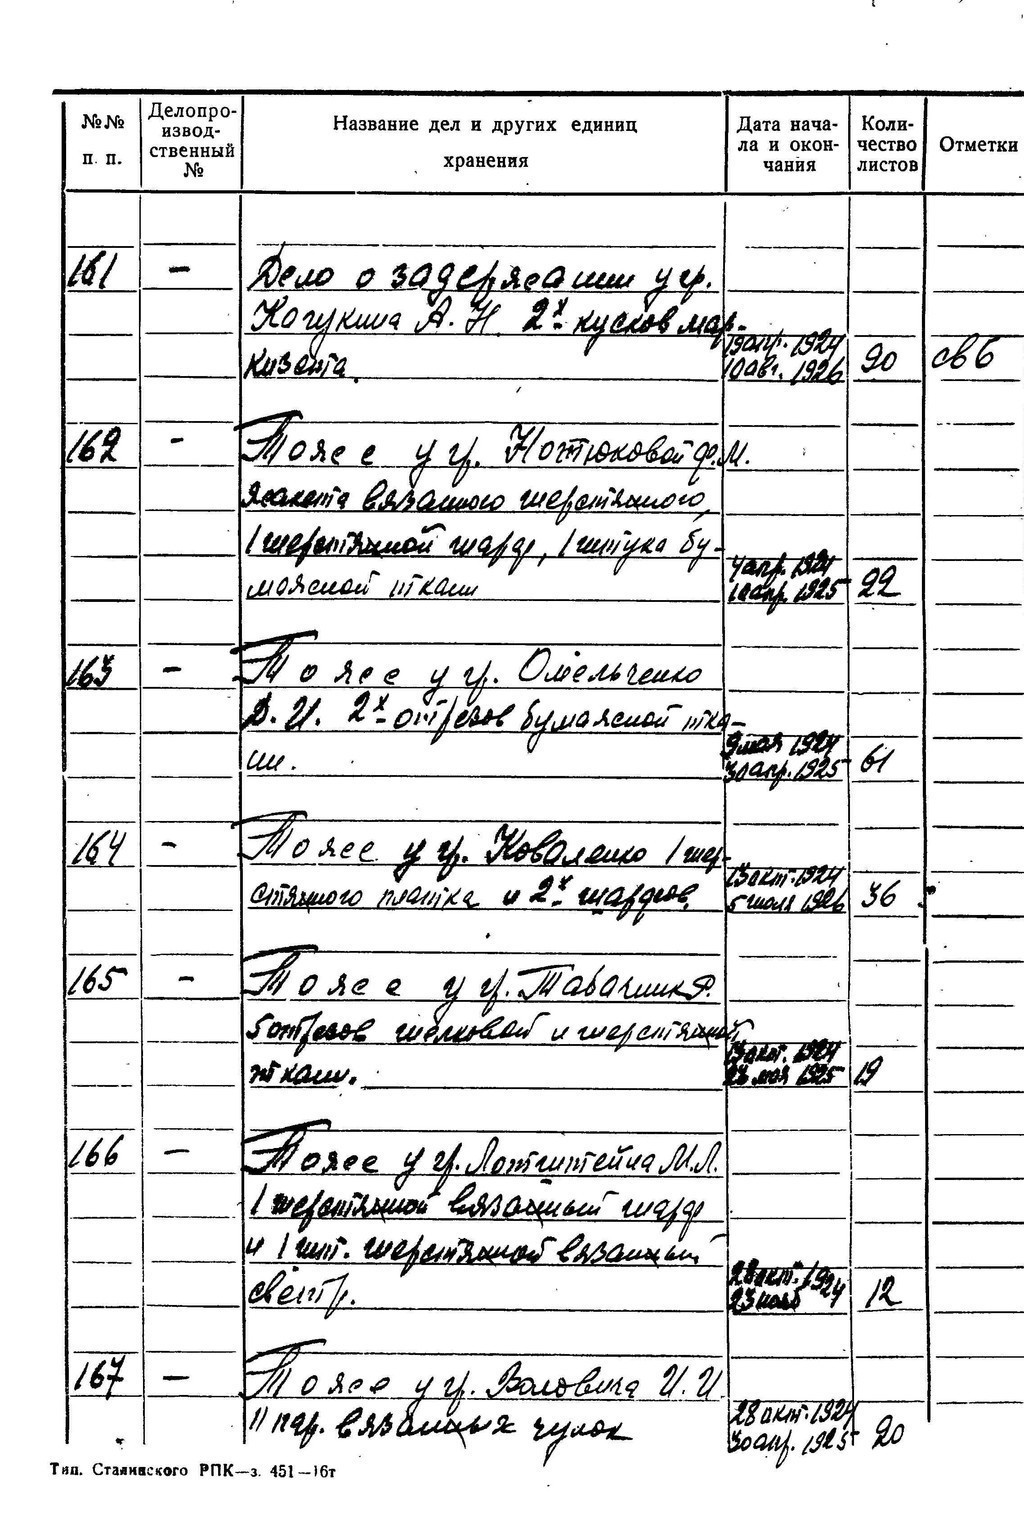 №№ п. п.
Делопро-
извод-
ственный
№
Название дел и других единиц
хранения
Дата нача-
ла и окон-
чания
Коли-
чество
листов
Отметки
161 — Дело о задержании у гр.
Качукина А. Н. 2х кусков мар-
кизета. 19 апр. 1924 10 авг. 1926 90 св 6
162 - То же у гр. Ножтюковой Ф. М.
жакета вязанного шерстяного,
1 шерстяной шарф, 1 штука бу-
мажной ткани 4 апр. 1924 10 апр. 1925 22
163 — То же у гр. Омельченко
Д. И. 2х отрезов бумажной тка-
ни. 9 мая 1924 30 апр. 1925 61
164 — То же у гр. Коваленко 1 шер-
стяного платка и 2х шарфов. 13 окт. 1924 5 июля 1926 36
165 — То же у гр. Табачник Р.
5 отрезов шелковой и шерстяной
ткани. 13 окт. 1924 23 мая 1925 19
166 — То же у гр. Лотштейна М. Л.
1 шерстяной вязанный шарф
и 1 шт. шерстяной вязанный
свентр. 28 окт. 1924 23 нояб 12
167 — То же у гр. Воловича И. И
11 пар. вязанных чулок 28 окт. 1924 30 апр. 1925 20
Тип. Сталинского РПК—з. 451—16т